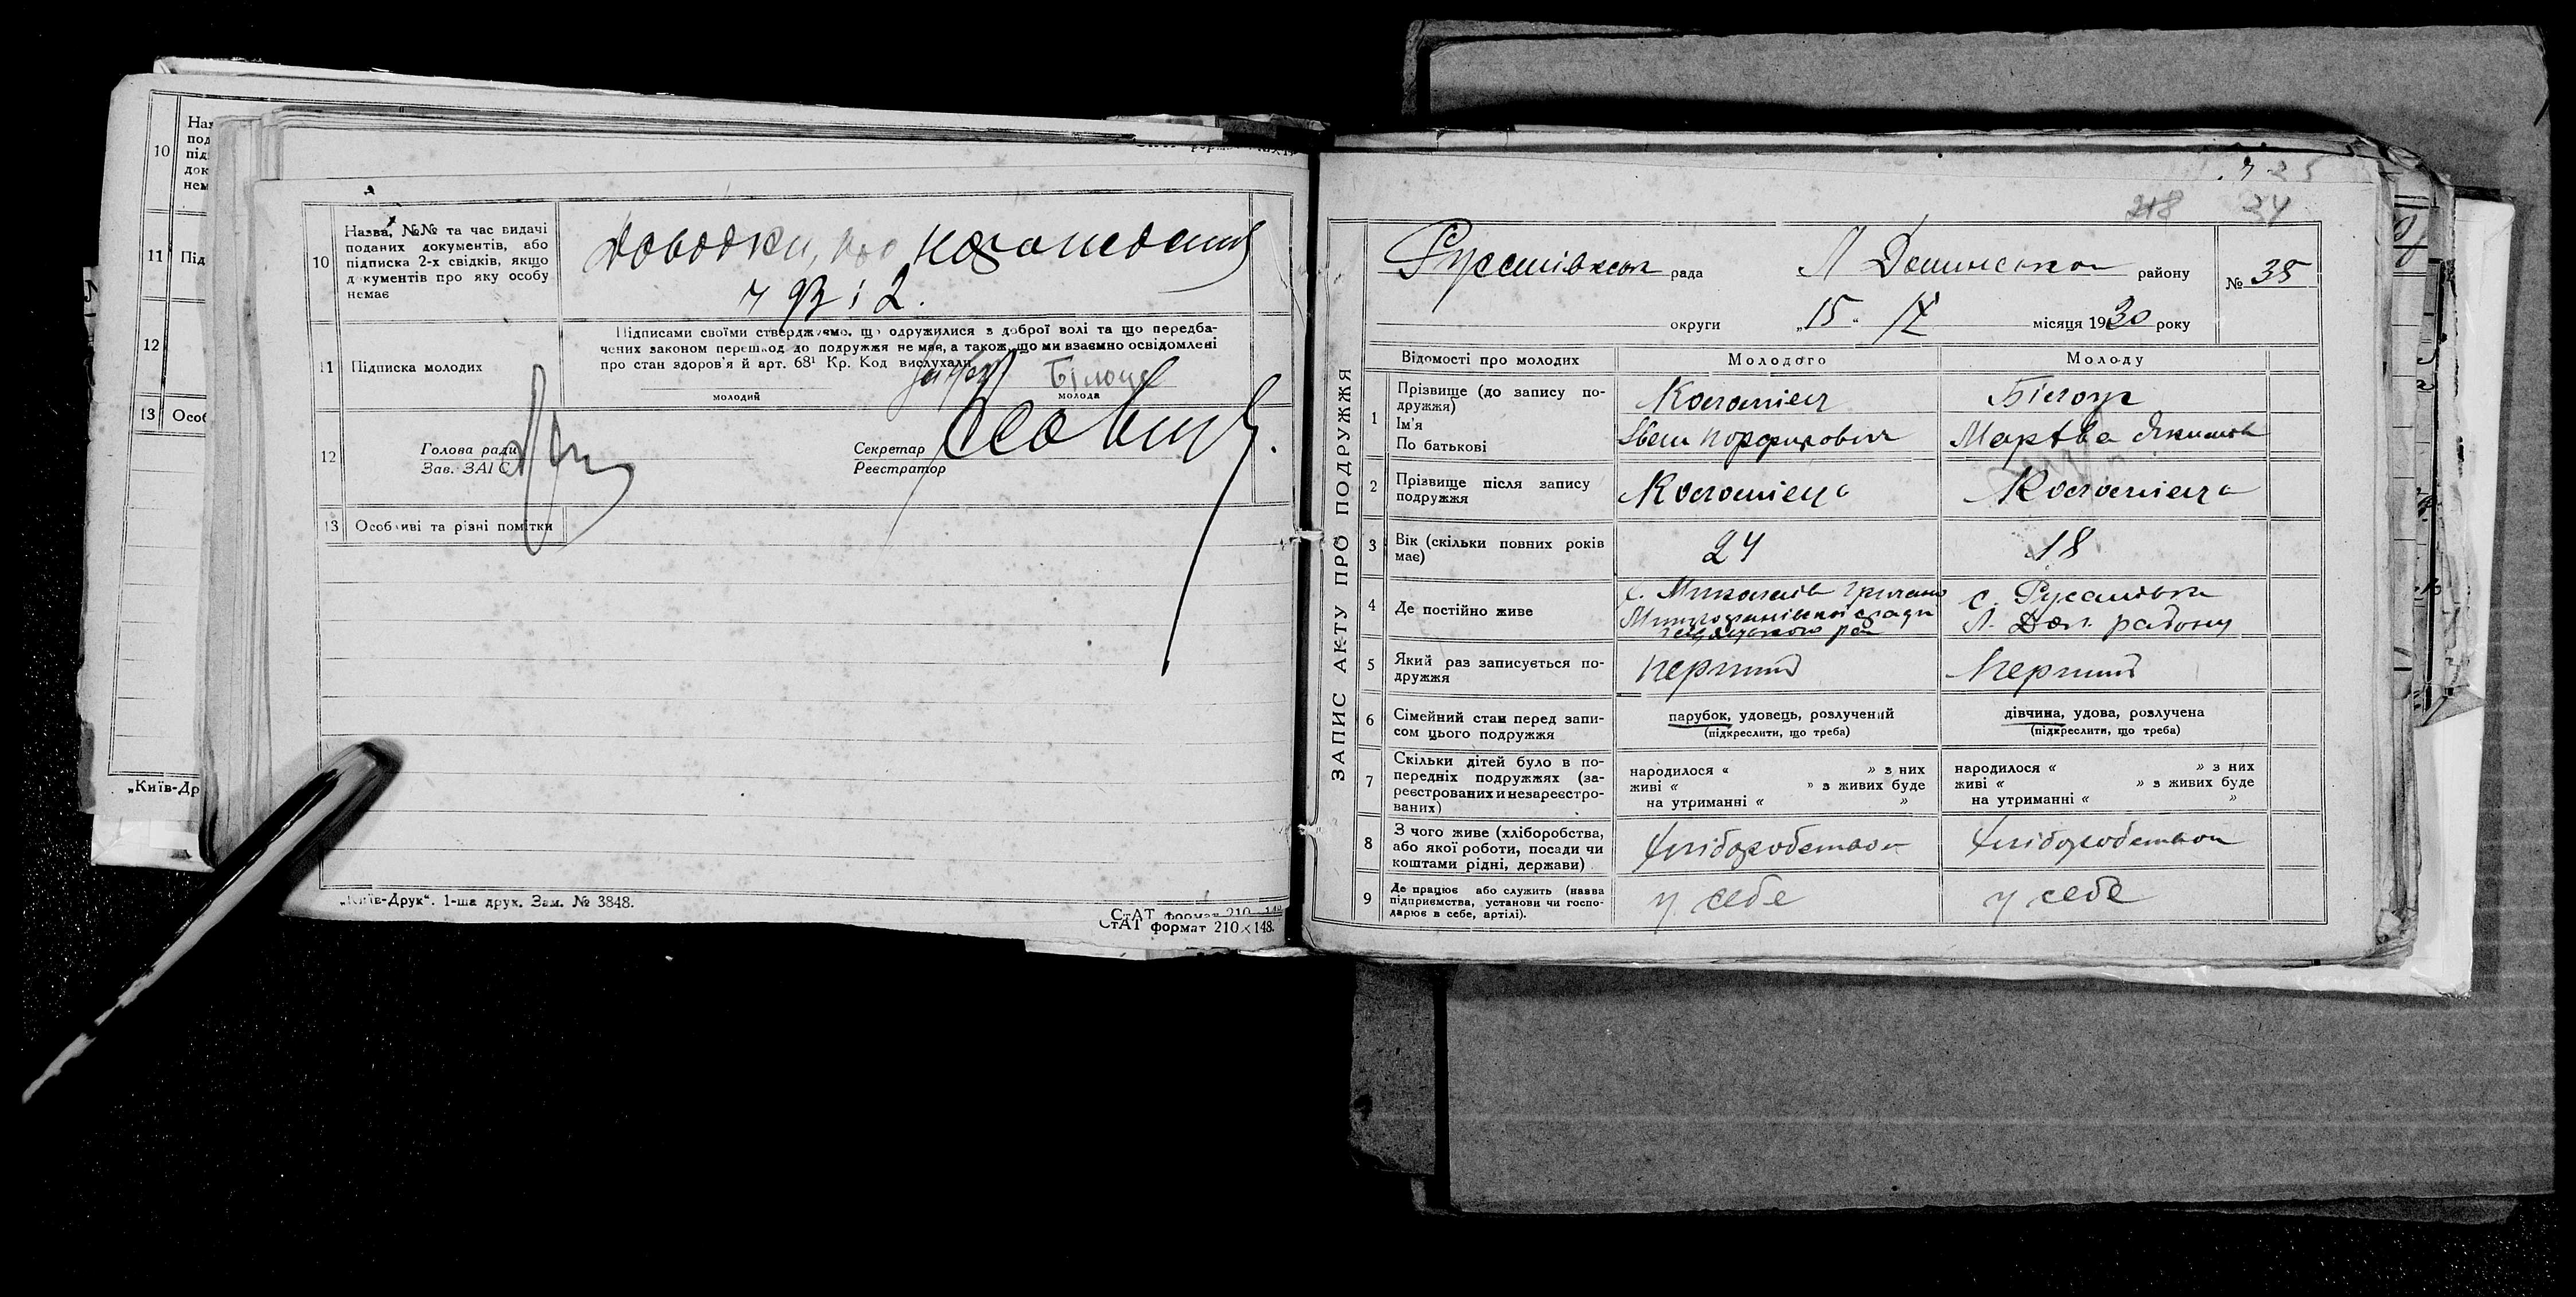 10
11
12
13
„Київ-Др
10
Назва, №№ та час видачі
поданих документів, або
підписка 2-х свідків, якщо
документів про яку особу
немає
Доводки, про народження
ч 93 і 2.
11
Підписка молодих
Підписами своїми стверджуємо, що одружилися з доброї волі та що передба-
чених законом перешкод до подружжя не має, а також, що ми взаємно освідомлені
про стан здоров'я й арт. 68¹ Кр. Код вислухали
Білоус
молодий
молода
12
Голова ради
Зав. ЗАГС
Секретар
Реєстратор
13
Особливі та різні помітки
„Київ-Друк". 1-ша друк. Зам. № 3848.
СтАТ формат 210×148.
СтАТ формат 210×148.
218 34
ЗАПИС АКТУ ПРО ПОДРУЖЖЯ
Русанівська рада Л Долинського району
№ 35
округи „15" IX місяця 1930 року
Відомості про молодих
Молодого
Молоду
1
Прізвище (до запису по-
дружжя)
Ім'я
По батькові
Коломієць
Порфирович
Білоус
Марта Якимів
2
Прізвище після запису
подружжя
Коломієць
Коломієць
3
Вік (скільки повних років
має)
24
18
4
Де постійно живе
с.
с. Русанівка
Л. Дол. району
5
Який раз записується по-
дружжя
перший
перший
6
Сімейний стан перед запи-
сом цього подружжя
парубок, удовець, розлучений
(підкреслити, що треба)
дівчина, удова, розлучена
(підкреслити, що треба)
7
Скільки дітей було в по-
передніх подружжях (за-
реєстрованих и незареєстро-
ваних)
народилося « » з них
живі « » з живих буде
на утриманні « »
народилося « » з них
живі « » з живих буде
на утриманні « »
8
З чого живе (хліборобства,
або якої роботи, посади чи
коштами рідні, держави)
хліборобством
хліборобством
9
Де працює або служить (назва
підприємства, установи чи госпо-
дарює в себе, артілі).
у себе
у себе